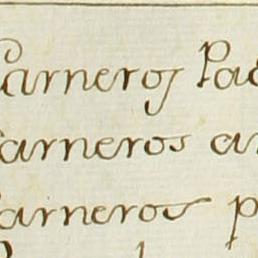 Carneros Pad
Carneros an
Carneros p